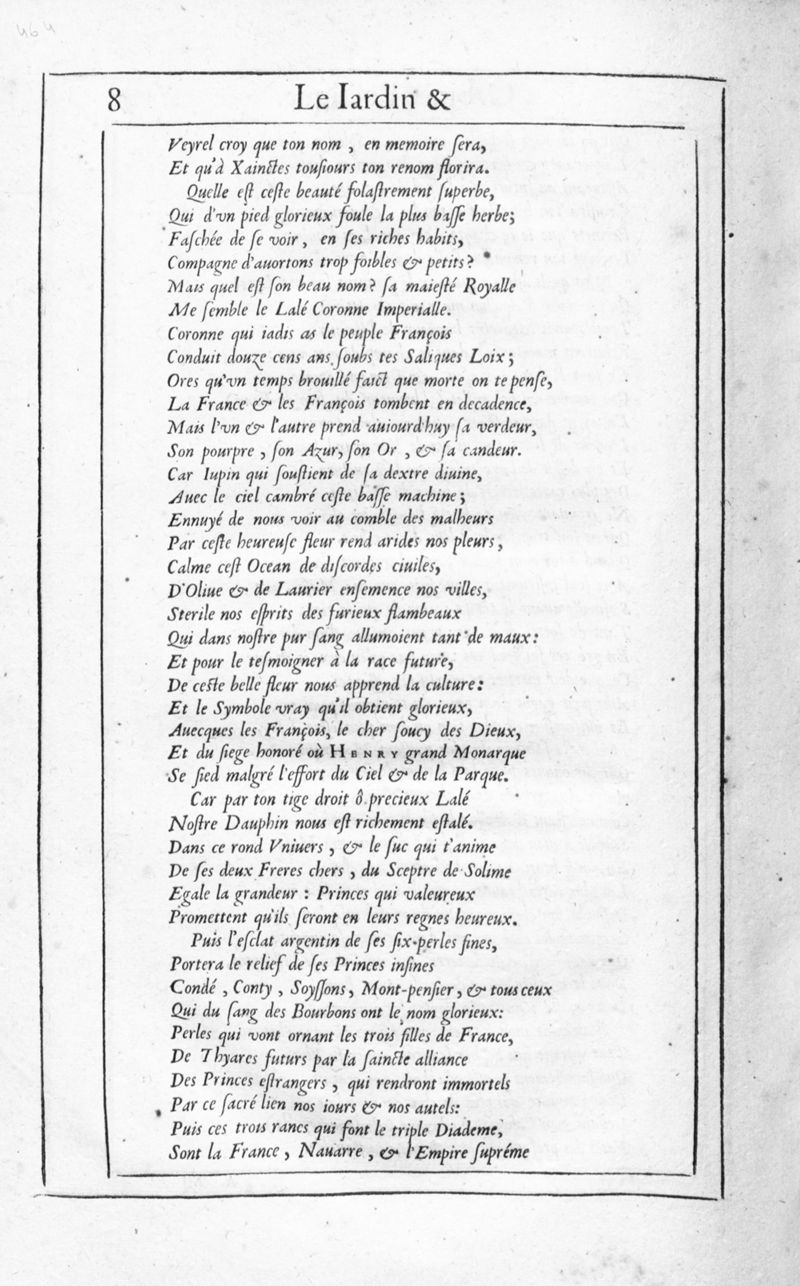 464
8 Le Iardin &
Veyrel croy que ton nom , en memoire ſera,
Et qu'à Xainctes touſiours ton renom florira.
Quelle eſt ceſte beauté folaſtrement ſuperbe,
Qui d'vn pied glorieux foule la plus baſſe herbe;
Faſchée de ſe voir , en ſes riches habits,
Compagne d'auortons trop foibles & petits?
Mais quel eſt ſon beau nom? ſa maieſté Royalle
Me ſemble le Lalé Coronne Imperialle.
Coronne qui iadis as le peuple François
Conduit douze cens ans ſoubs tes Saliques Loix;
Ores qu'vn temps brouillé faict que morte on te penſe,
La France & les François tombent en decadence,
Mais l'vn & l'autre prend auiourd'huy ſa verdeur,
Son pourpre , ſon Azur, ſon Or , & ſa candeur.
Car Iupin qui ſouſtient de ſa dextre diuine,
Auec le ciel cambré ceſte baſſe machine;
Ennuyé de nous voir au comble des malheurs
Par ceſte heureuſe fleur rend arides nos pleurs,
Calme ceſt Ocean de diſcordes ciuiles,
D'Oliue & de Laurier enſemence nos villes,
Sterile nos eſprits des furieux flambeaux
Qui dans noſtre pur ſang allumoient tant de maux:
Et pour le teſmoigner à la race future,
De ceſte belle fleur nous apprend la culture:
Et le Symbole vray qu'il obtient glorieux,
Auecques les François, le cher ſoucy des Dieux,
Et du ſiege honoré où HENRY grand Monarque
Se ſied malgré l'effort du Ciel & de la Parque.
Car par ton tige droit ô precieux Lalé
Noſtre Dauphin nous eſt richement eſtalé.
Dans ce rond Vniuers , & le ſuc qui t'anime
De ſes deux Freres chers , du Sceptre de Solime
Egale la grandeur : Princes qui valeureux
Promettent qu'ils ſeront en leurs regnes heureux.
Puis l'eſclat argentin de ſes ſix-perles fines,
Portera le relief de ſes Princes inſines
Condé , Conty , Soyſſons, Mont-penſier, & tous ceux
Qui du ſang des Bourbons ont le nom glorieux:
Perles qui vont ornant les trois filles de France,
De Thyares futurs par la ſaincte alliance
Des Princes eſtrangers , qui rendront immortels
Par ce ſacré lien nos iours & nos autels:
Puis ces trois rancs qui font le triple Diademe,
Sont la France , Nauarre , & l'Empire ſupréme